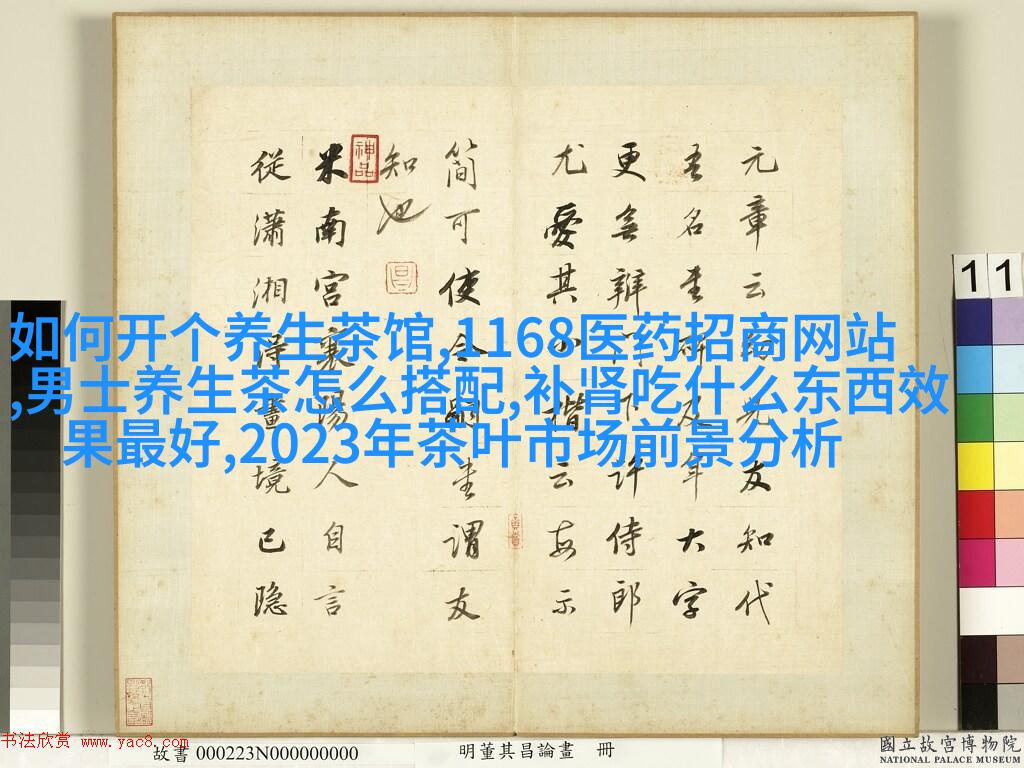 如何开个养生茶馆,1168医药招商网站
,男士养生茶怎么搭配,补肾吃什么东西效
果最好,2023年茶叶市场前景分析
元章云兒友知代
吾名書碑及年大字
更無辨門下許侍郎
尤愛其小楷云每示
簡可使令嗣書謂友
知也
神品
米南宮襄陽人自言
從瀟湘得畫境已隱
11
书法欣赏 www.yac8.com
故書 000223N000000000
明董其昌論畫 冊
國立故宮博物院
NATIONAL PALACE MUSEUM